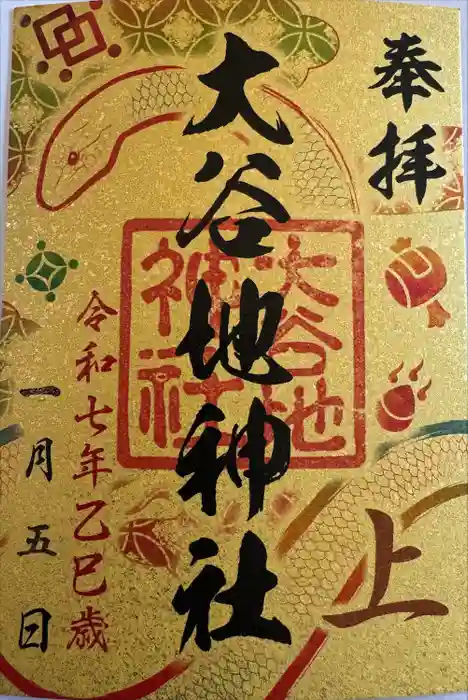 奉拝
上
大谷地神社
大谷地
神社
令和七年乙巳歳
一月五日